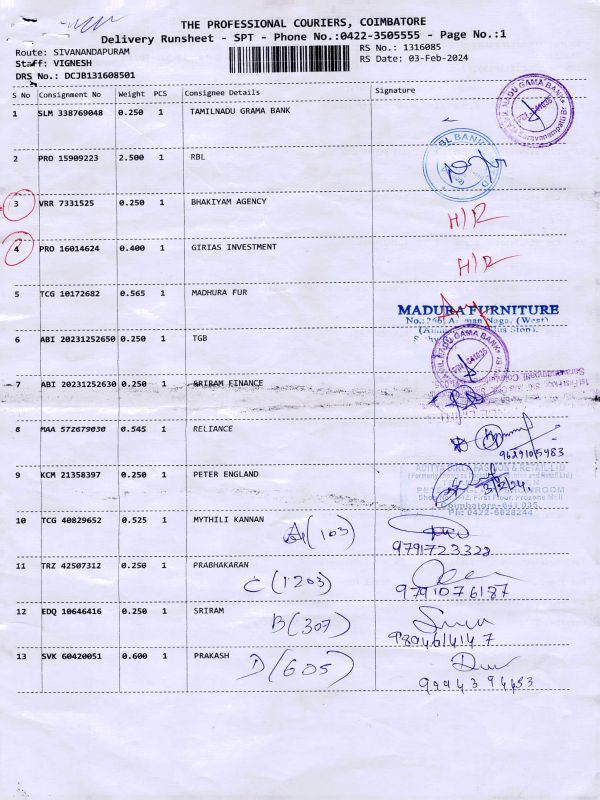 THE PROFESSIONAL COURIERS, COIMBATORE
Delivery Runsheet - SPT - Phone No.:0422-3505555 - Page No.:1
Route: SIVANANDAPURAM RS No.: 1316085
Staff: VIGNESH RS Date: 03-Feb-2024
DRS No.: DCJB131608501
S No Consignment No Weight PCS Consignee Details Signature
1 SLM 338769048 0.250 1 TAMILNADU GRAMA BANK
2 PRO 15909223 2.500 1 RBL
3 VRR 7331525 0.250 1 BHAKIYAM AGENCY H/R
4 PRO 16014624 0.400 1 GIRIAS INVESTMENT H/R
5 TCG 10172682 0.565 1 MADHURA FUR
MADURA FURNITURE
6 ABI 20231252650 0.250 1 TGB
7 ABI 20231252630 0.250 1 SRIRAM FINANCE
8 MAA 572679030 0.545 1 RELIANCE
9 KCM 21358397 0.250 1 PETER ENGLAND 3/2/24
Coimbatore-641 035
Ph: 0422-6628244
10 TCG 40829652 0.525 1 MYTHILI KANNAN A(103)
9791723322
11 TRZ 42507312 0.250 1 PRABHAKARAN C(1203)
9791076187
12 EDQ 10646416 0.250 1 SRIRAM B(307)
13 SVK 60420051 0.600 1 PRAKASH D(605)